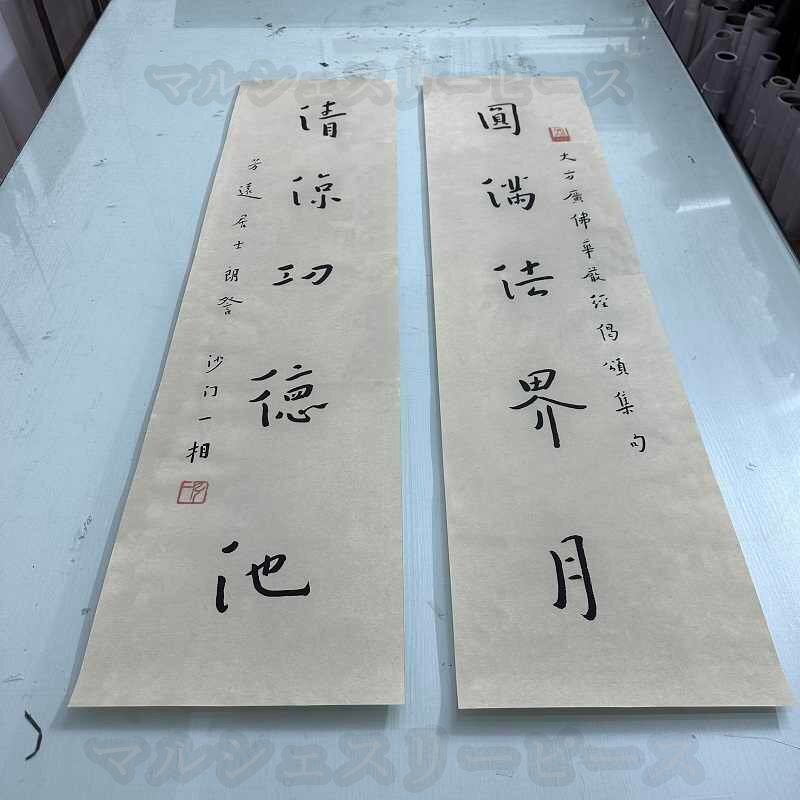 マルシェスリーピース
大方廣佛華嚴經偈頌集句
圓滿法界月
清涼功德池
芳遠居士朗詧
沙门一相
マルシェスリーピース